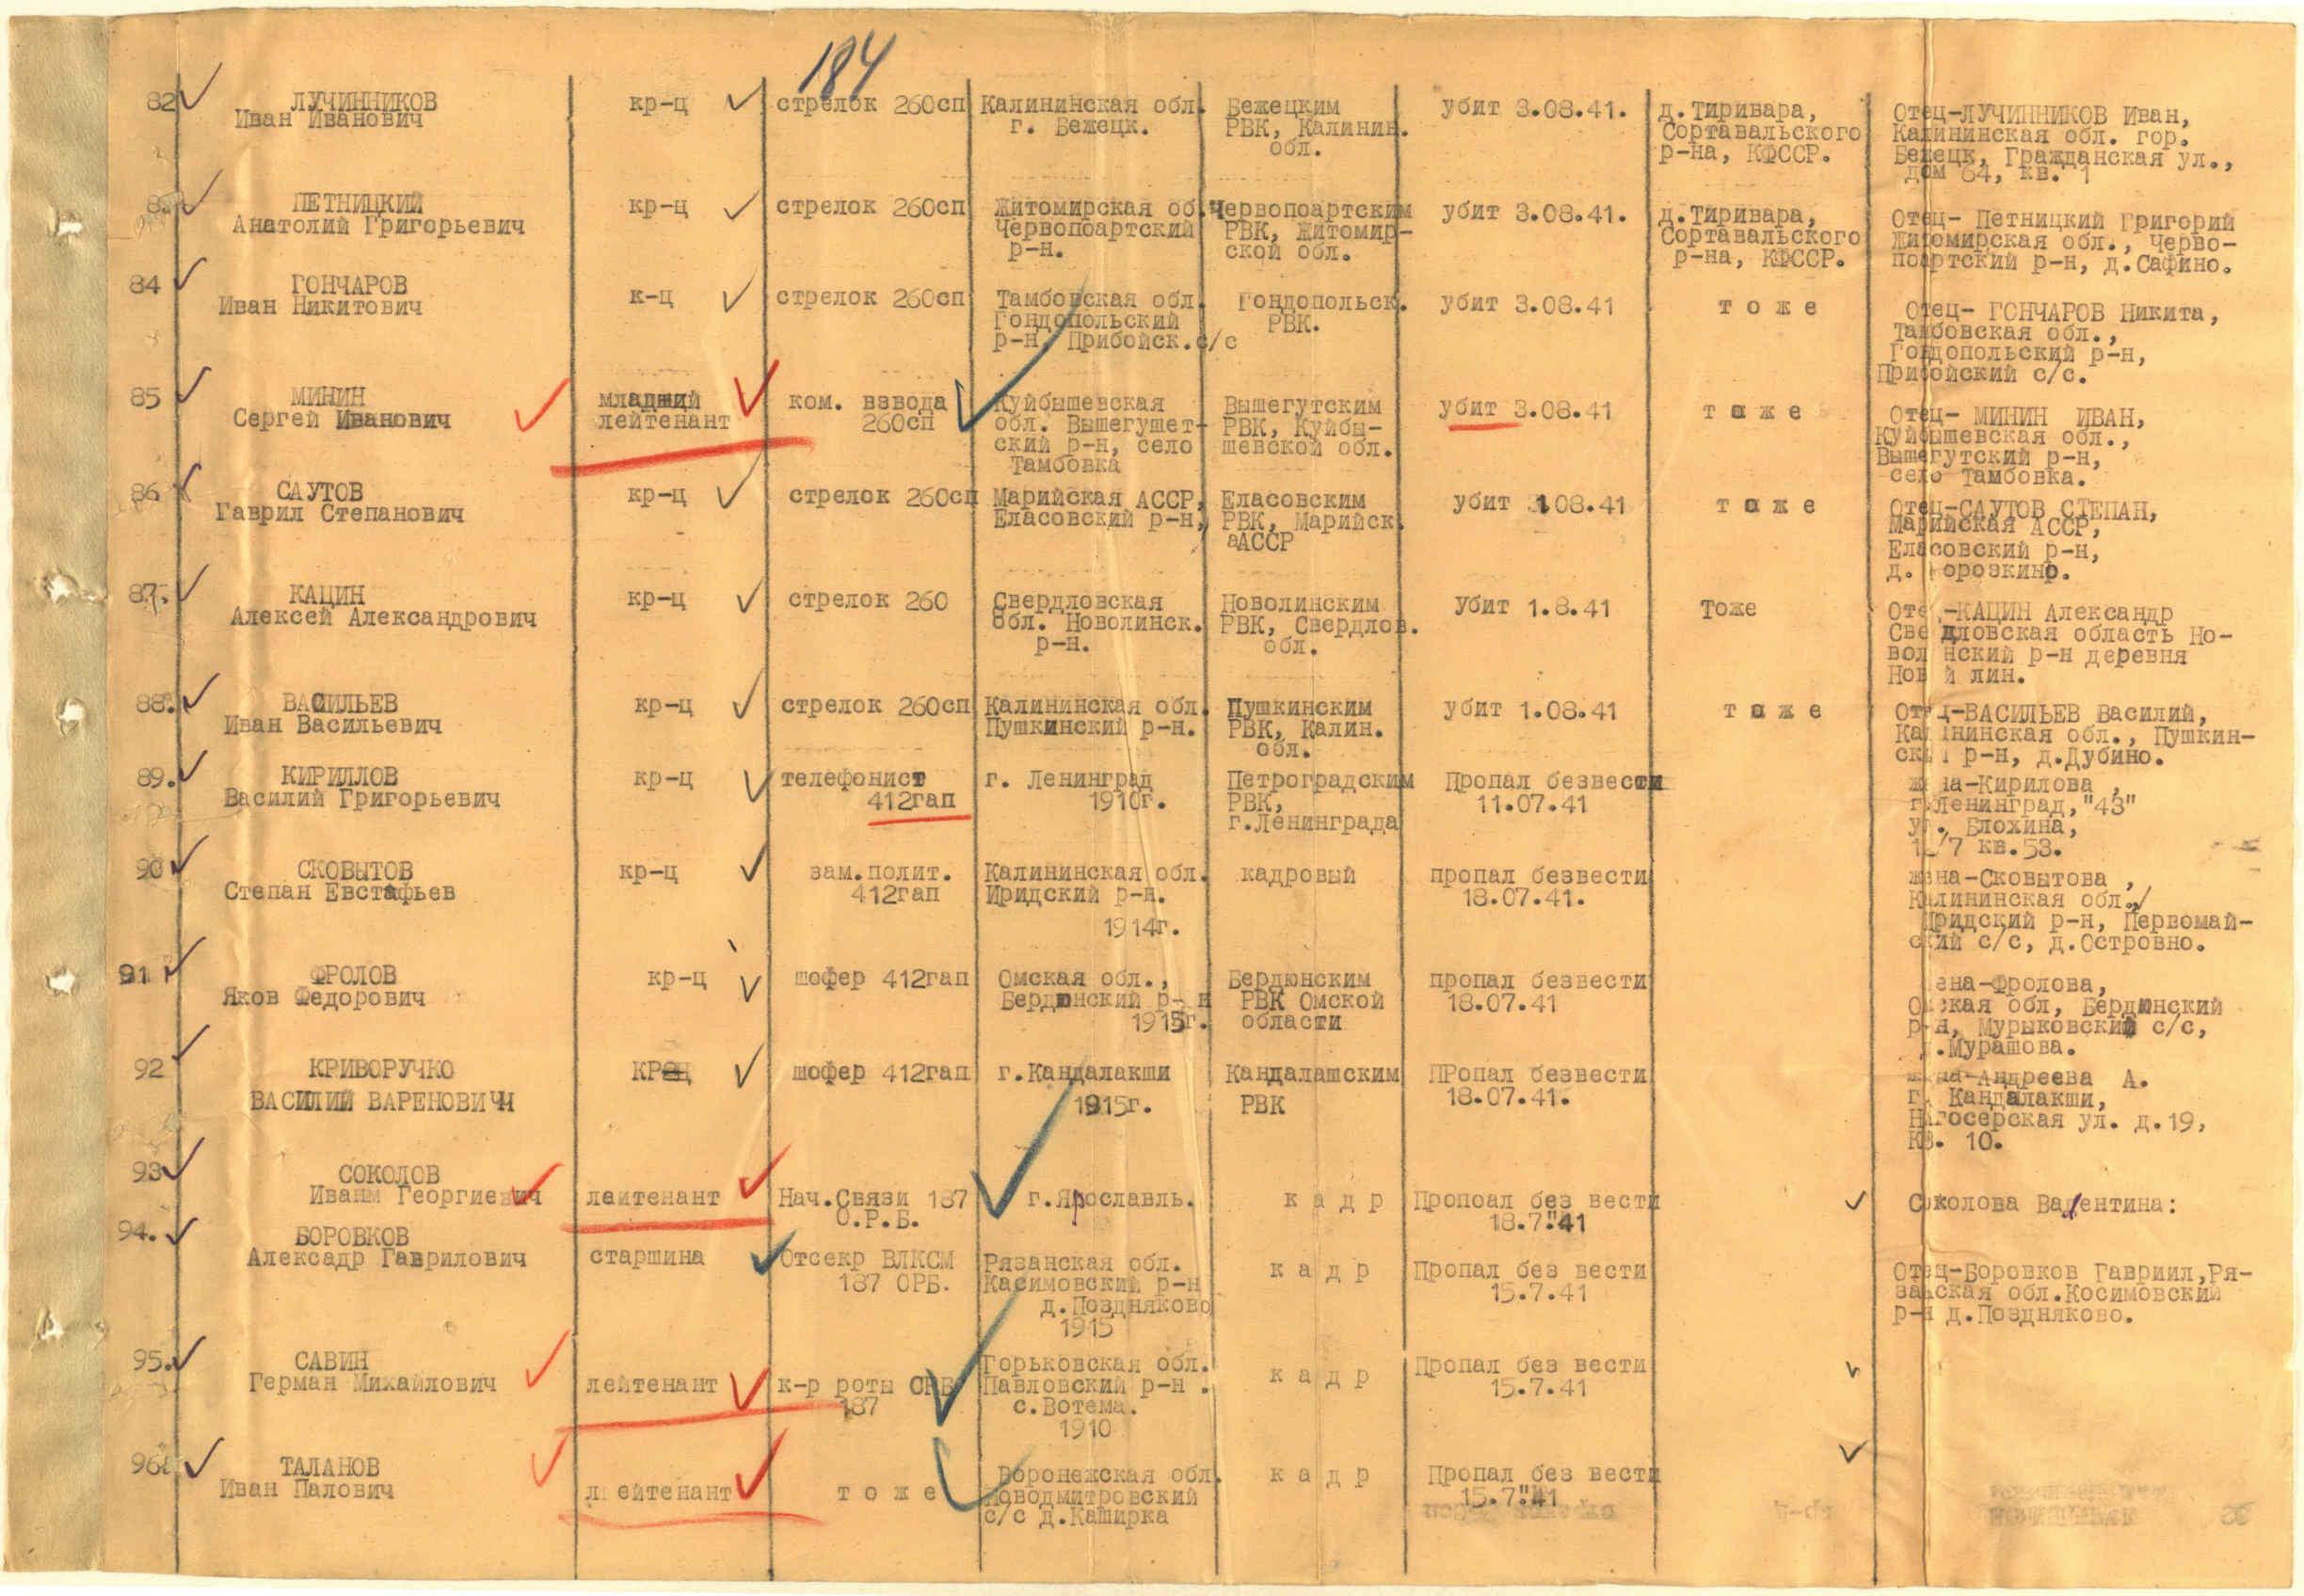 184
82
ЛУЧИННИКОВ
Иван Иванович
кр-ц
стрелок 260сп
Калининская обл.
г. Бежецк.
Бежецким
РВК, Калинин.
обл.
убит 3.08.41.
д.Тиривара,
Сортавальского
р-на, КФССР.
Отец-ЛУЧИННИКОВ Иван,
Калининская обл. гор.
Бежецк, Гражданская ул.,
дом 64, кв. 1
83
ПЕТНИЦКИЙ
Анатолий Григорьевич
кр-ц
стрелок 260сп
Житомирская об.
Червопоартский
р-н.
Червопоартским
РВК, Житомир-
ской обл.
убит 3.08.41.
д.Тиривара,
Сортавальского
р-на, КФССР.
Отец- Петницкий Григорий
Житомирская обл., Черво-
поартский р-н, д.Сафино.
84
ГОНЧАРОВ
Иван Никитович
к-ц
стрелок 260сп
Тамбовская обл.
Гондопольский
р-н, Прибойск.с/с
Гондопольск.
РВК.
убит 3.08.41
т о ж е
Отец- ГОНЧАРОВ Никита,
Тамбовская обл.,
Гондопольский р-н,
Прибойский с/с.
85
МИНИН
Сергей Иванович
младший
лейтенант
ком. взвода
260сп
Куйбышевская
обл. Вышегушет-
ский р-н, село
Тамбовка
Вышегутским
РВК, Куйбы-
шевской обл.
убит 3.08.41
т о ж е
Отец- МИНИН ИВАН,
Куйбышевская обл.,
Вышегутский р-н,
село Тамбовка.
86
САУТОВ
Гаврил Степанович
кр-ц
стрелок 260сп
Марийская АССР,
Еласовский р-н,
Еласовским
РВК, Марийск.
аАССР
убит 1.08.41
т о ж е
Отец-САУТОВ СТЕПАН,
Марийская АССР,
Еласовский р-н,
д.
87.
КАЦИН
Алексей Александрович
кр-ц
стрелок 260
Свердловская
обл. Новолинск.
р-н.
Новолинским
РВК, Свердлов.
обл.
Убит 1.8.41
Тоже
Отец-КАЦИН Александр
Свердловская область Но-
волинский р-н деревня
Новый лин.
88.
ВАСИЛЬЕВ
Иван Васильевич
кр-ц
стрелок 260сп
Калининская обл.
Пушкинский р-н.
Пушкинским
РВК, Калин.
обл.
убит 1.08.41
т о ж е
Отец-ВАСИЛЬЕВ Василий,
Калининская обл., Пушкин-
ский р-н, д.Дубино.
89.
КИРИЛЛОВ
Василий Григорьевич
кр-ц
телефонист
412гап
г. Ленинград
1910г.
Петроградским
РВК,
г.Ленинграда
Пропал безвести
11.07.41
жена-Кирилова ,
г.Ленинград,"43"
ул. Блохина,
кв.53.
90
СКОВЫТОВ
Степан Евстафьев
кр-ц
зам.полит.
412гап
Калининская обл.
Иридский р-н.
1914г.
кадровый
пропал безвести
18.07.41.
жена-Сковытова ,
Калининская обл.,
Иридский р-н, Первомай-
ский с/с, д.Островно.
91
ФРОЛОВ
Яков Федорович
кр-ц
шофер 412гап
Омская обл.,
Бердюнский р- н
1915г.
Бердюнским
РВК Омской
области
пропал безвести
18.07.41
жена-Фролова,
Омская обл, Бердюнский
р-н, Мурыковский с/с,
д.Мурашова.
92
КРИВОРУЧКО
ВАСИЛИЙ ВАРЕНОВИЧ
шофер 412гап
г.Кандалакши
1915г.
Кандалашским
РВК
ПРопал безвести
18.07.41.
жена-Андреева А.
г. Кандалакши,
Нагосерская ул. д.19,
Кв. 10.
93
СОКОЛОВ
Иванм Георгиевич
лейтенант
Нач.Связи 187
О.Р.Б.
г.Ярославль.
к а д р
Пропоал без вести
18.7.41
Соколова Валентина:
94.
БОРОВКОВ
Алексадр Гаврилович
старшина
Отсекр ВЛКСМ
187 ОРБ.
Рязанская обл.
Касимовский р-н
д.Поздняково
1915
к а д р
Пропал без вести
15.7.41
Отец-Боровков Гавриил,Ря-
занская обл.Косимовский
р-н д.Поздняково.
95.
САВИН
Герман Михайлович
лейтенант
к-р роты ОРБ
187
Горьковская обл.
Павловский р-н .
с.Вотема.
1910
к а д р
Пропал без вести
15.7.41
96
ТАЛАНОВ
Иван Палович
лейтенант
т о ж е
Воронежская обл.
Новодмитровский
с/с д.Каширка
к а д р
Пропал без вести
15.7.41